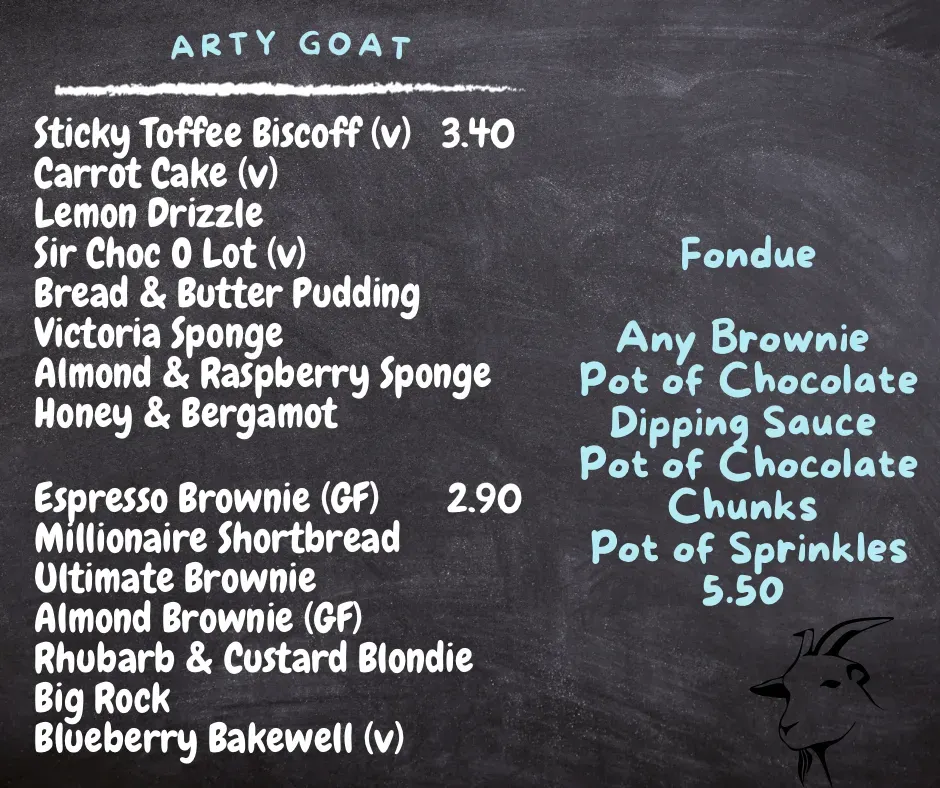 ARTY GOAT
Sticky Toffee Biscoff (v) 3.40
Carrot Cake (v)
Lemon Drizzle
Sir Choc O Lot (v)
Bread & Butter Pudding
Victoria Sponge
Almond & Raspberry Sponge
Honey & Bergamot
Espresso Brownie (GF) 2.90
Millionaire Shortbread
Ultimate Brownie
Almond Brownie (GF)
Rhubarb & Custard Blondie
Big Rock
Blueberry Bakewell (v)
Fondue
Any Brownie
Pot of Chocolate
Dipping Sauce
Pot of Chocolate
Chunks
Pot of Sprinkles
5.50